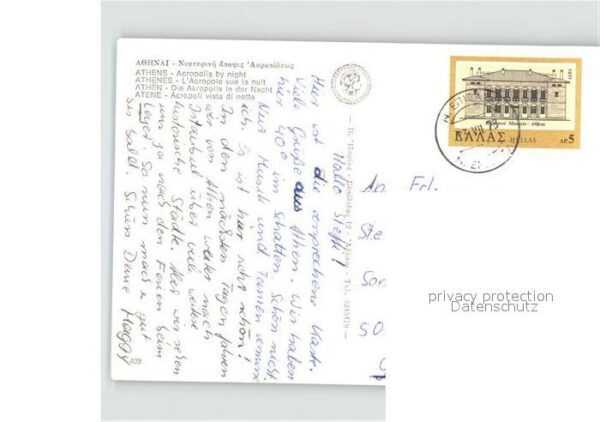 ΑΘΗΝΑΙ - Νυκτερινή άποψις Ἀκροπόλεως
ATHENS - Acropolis by night
ATHENES - L'Acropole vue la nuit
ATHEN - Die Akropolis in der Nacht
ATENE - Acropoli vista di notte
Hallo Steffi!
Hier ist die versprochene Karte.
Viele Grüße aus Athen. Wir haben
hier 40° im Schatten. Schön nicht.
Nur Musik und Tramen
ich. Es ist hier sehr schön!
In den nächsten Tagen fahren
wir von Athen weiter nach
Istanbul über viele weitere
historische Städte. Aber wir sehen
uns ja nach den Ferien beim
So nun mach's gut
bis bald. Schöni Deine Maggy
409
An Frl.
Ste
Son
SO
ΕΛΛΑΣ HELLAS ΔΡ 5
privacy protection
Datenschutz